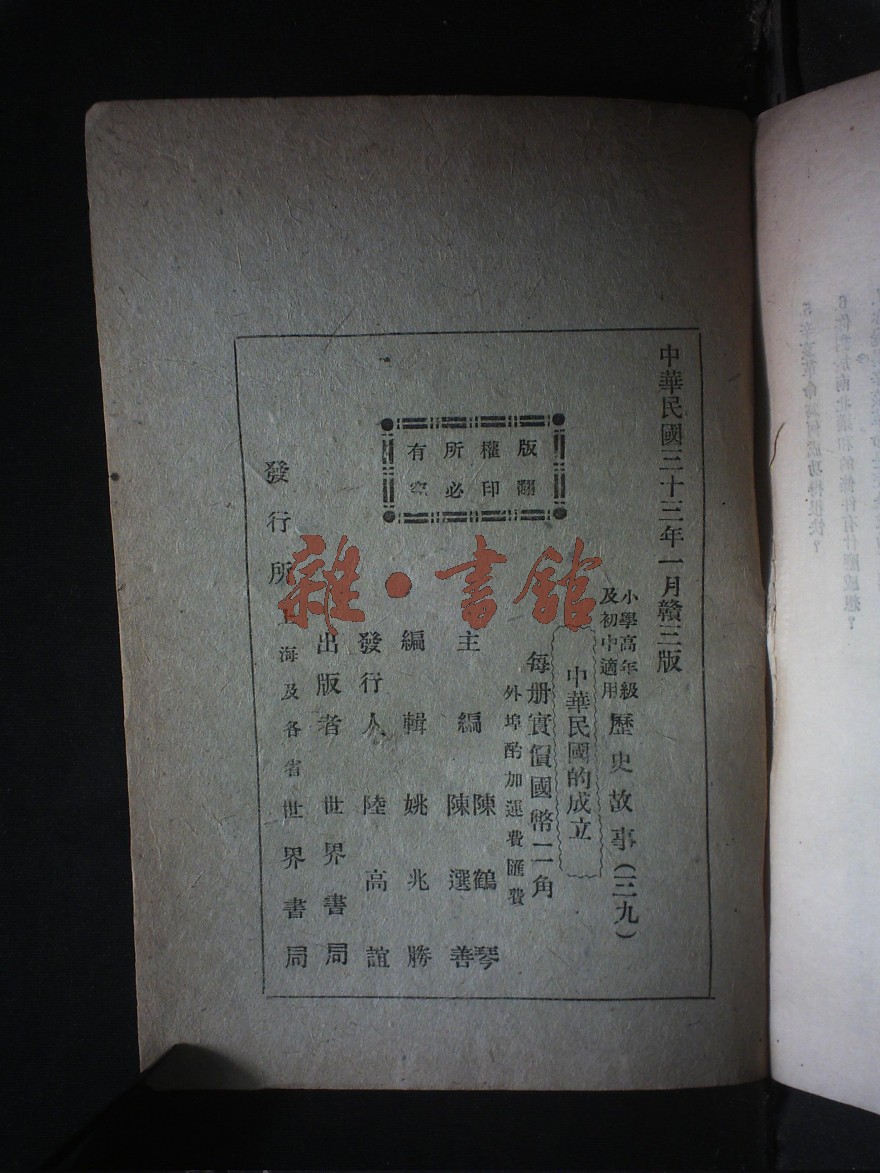 中華民國三十三年一月贛三版
小學高年級
及初中適用
歷史故事(三九)
中華民國的成立
每册實價國幣二角
外埠酌加運費匯費
版權所有
翻印必究
主編 陳鶴琴
陳選善
編輯 姚兆勝
發行人 陸高誼
出版者 世界書局
發行所 上海及各省世界書局
雜·書館